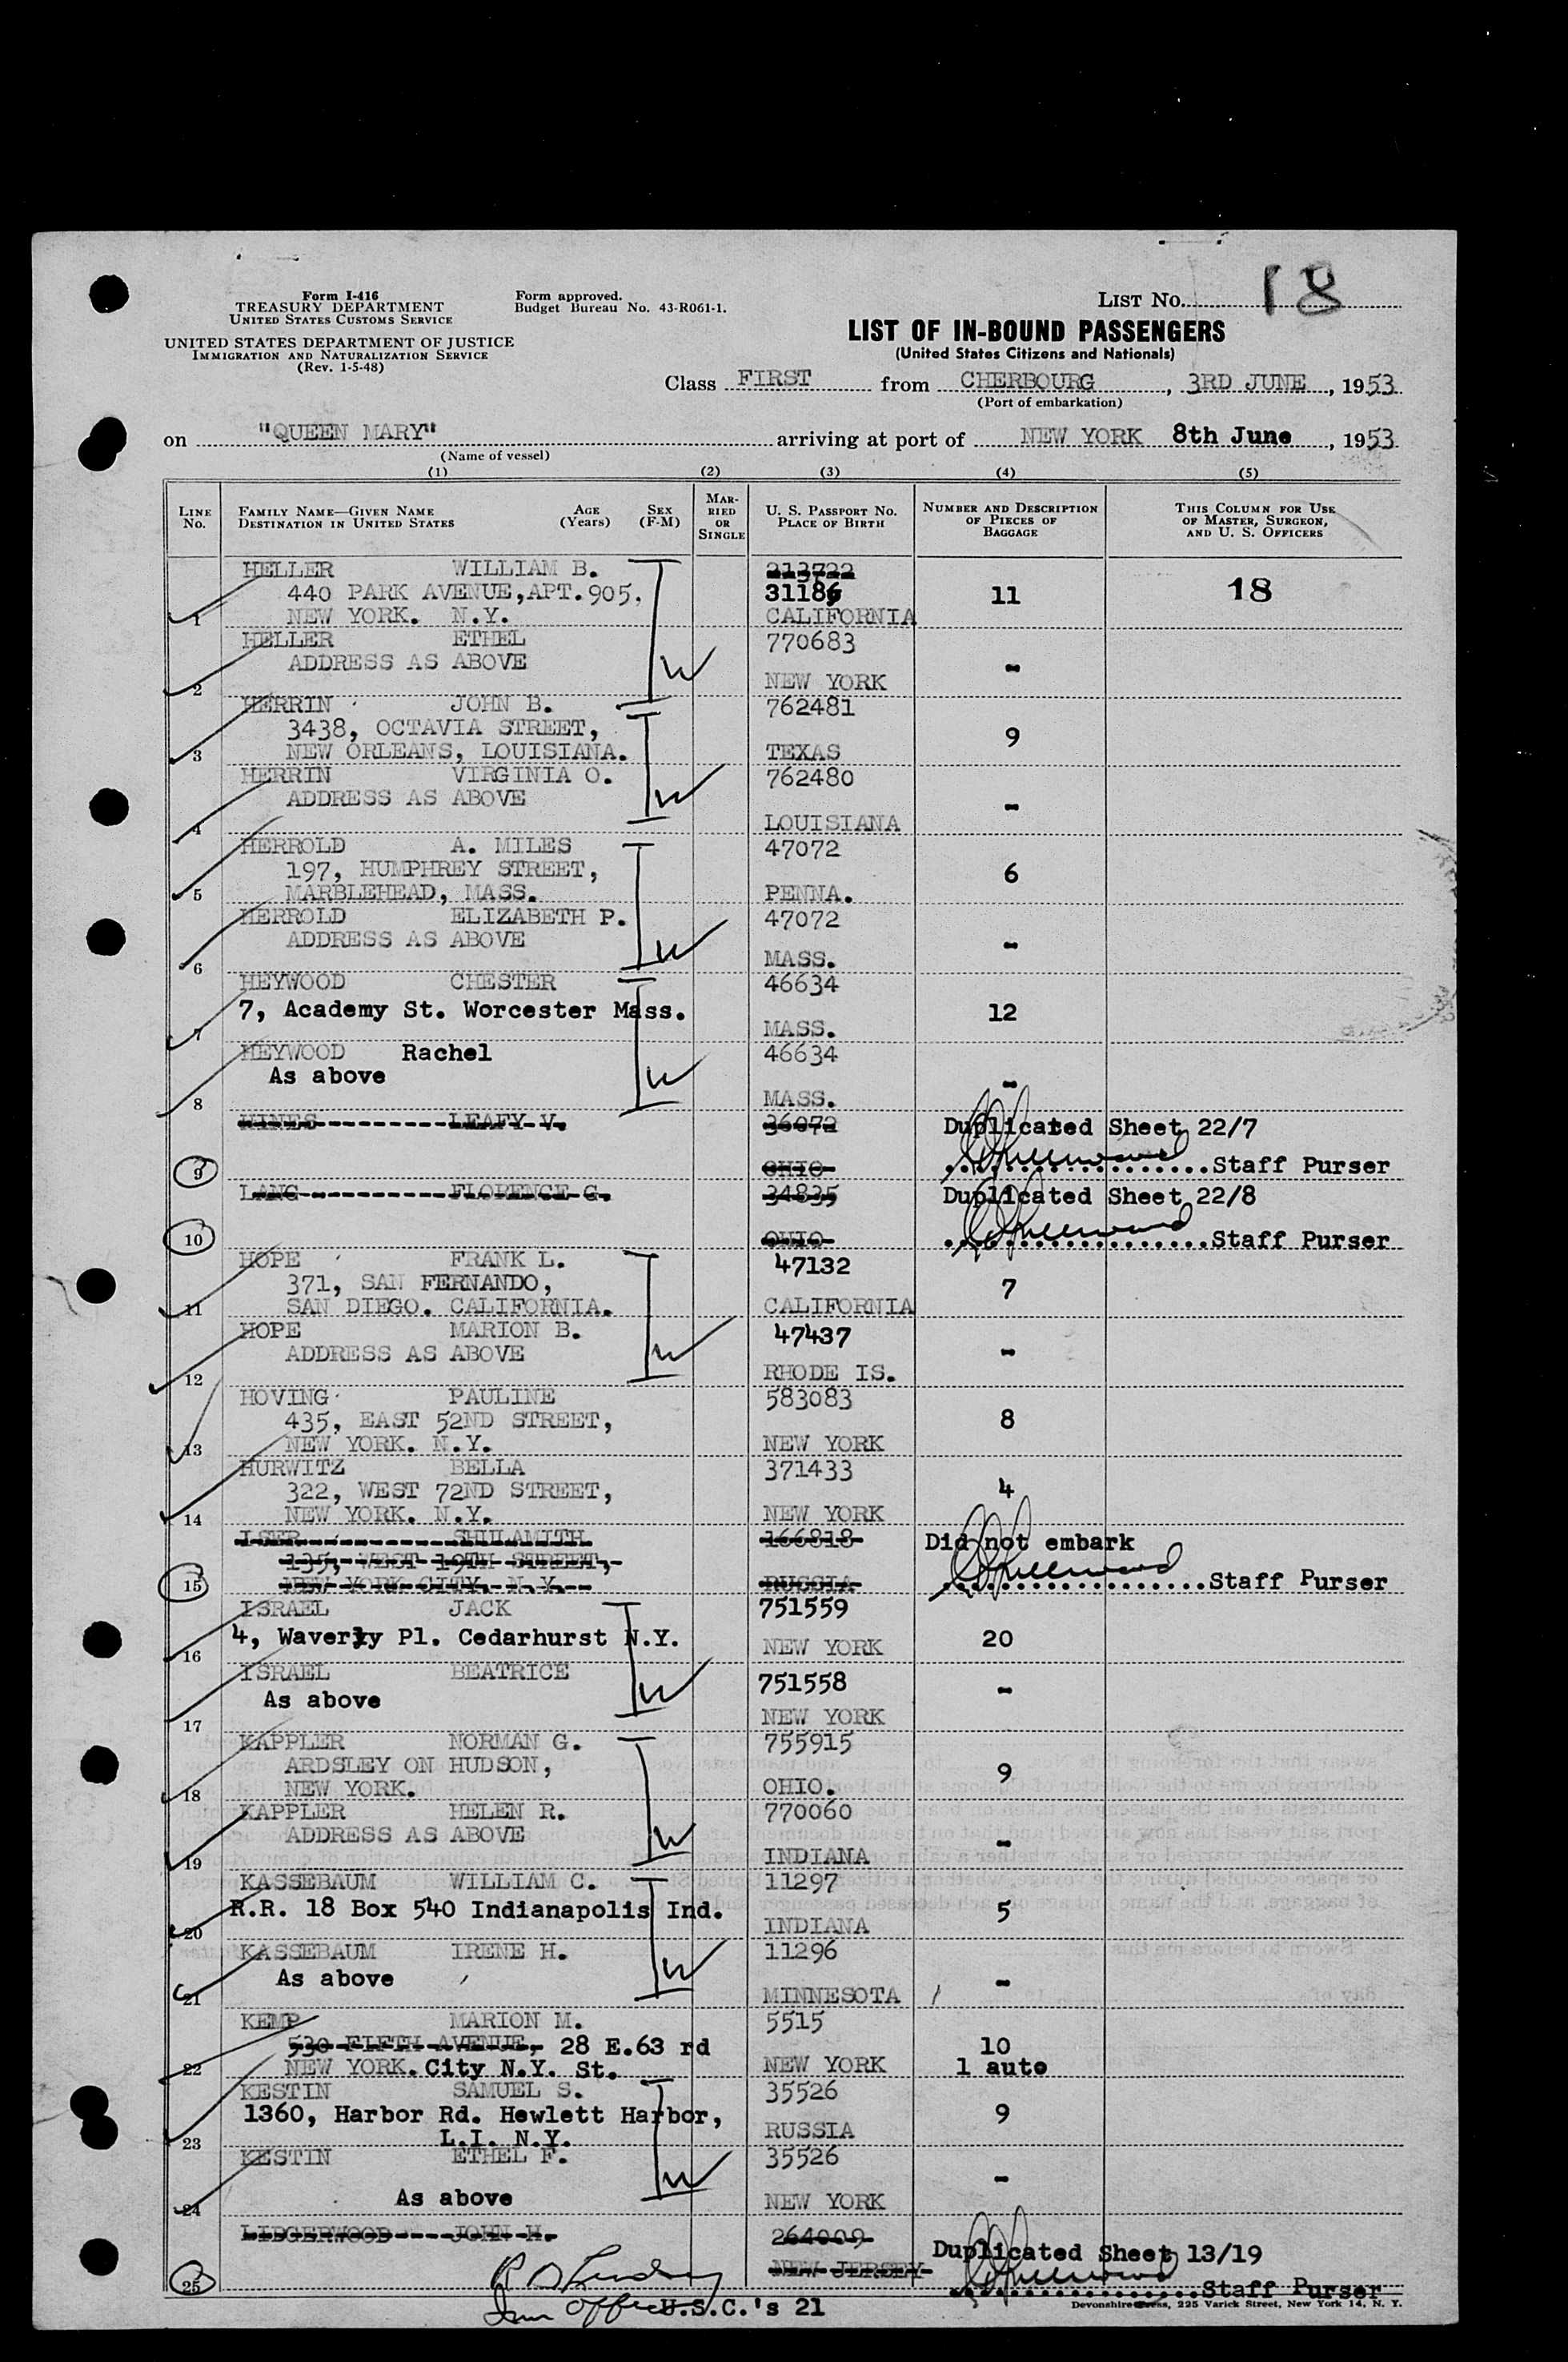 Form I-416
TREASURY DEPARTMENT
UNITED STATES CUSTOMS SERVICE
UNITED STATES DEPARTMENT OF JUSTICE
IMMIGRATION AND NATURALIZATION SERVICE
(Rev. 1-5-48)
Form approved.
Budget Bureau No. 43-R061-1.
LIST NO. 18
LIST OF IN-BOUND PASSENGERS
(United States Citizens and Nationals)
Class FIRST from CHERBOURG, 3RD JUNE, 1953
(Port of embarkation)
on "QUEEN MARY" arriving at port of NEW YORK 8th June, 1953
(Name of vessel)
(1) (2) (3) (4) (5)
LINE NO.
FAMILY NAME—GIVEN NAME
DESTINATION IN UNITED STATES
AGE (Years)
SEX (F-M)
MARRIED OR SINGLE
U. S. PASSPORT NO.
PLACE OF BIRTH
NUMBER AND DESCRIPTION OF PIECES OF BAGGAGE
THIS COLUMN FOR USE OF MASTER, SURGEON, AND U. S. OFFICERS
HELLER WILLIAM B. 213722
440 PARK AVENUE, APT. 905. 31186 11 18
1 NEW YORK. N.Y. CALIFORNIA
HELLER ETHEL 770683
ADDRESS AS ABOVE W -
2 NEW YORK
HERRIN JOHN B. 762481
3438, OCTAVIA STREET, 9
3 NEW ORLEANS, LOUISIANA. TEXAS
HERRIN VIRGINIA O. 762480
ADDRESS AS ABOVE W -
4 LOUISIANA
HERROLD A. MILES 47072
197, HUMPHREY STREET, 6
5 MARBLEHEAD, MASS. PENNA.
HERROLD ELIZABETH P. 47072
ADDRESS AS ABOVE W -
6 MASS.
HEYWOOD CHESTER 46634
7, Academy St. Worcester Mass. 12
7 MASS.
HEYWOOD Rachel 46634
As above W -
8 MASS.
HINES LEAFY V. 36072 Duplicated Sheet 22/7
9 OHIO Staff Purser
LANG FLORENCE G. 34835 Duplicated Sheet 22/8
10 OHIO Staff Purser
HOPE FRANK L. 47132
371, SAN FERNANDO, 7
11 SAN DIEGO. CALIFORNIA. CALIFORNIA
HOPE MARION B. 47437
ADDRESS AS ABOVE W -
12 RHODE IS.
HOVING PAULINE 583083
435, EAST 52ND STREET, 8
13 NEW YORK. N.Y. NEW YORK
HURWITZ BELLA 371433
322, WEST 72ND STREET, 4
14 NEW YORK. N.Y. NEW YORK
ISER SHULAMITH 166818 Did not embark
135, WEST 19TH STREET,
15 NEW YORK CITY, N.Y. RUSSIA Staff Purser
ISRAEL JACK 751559
4, Waverly Pl. Cedarhurst N.Y. 20
16 NEW YORK
ISRAEL BEATRICE 751558
As above W -
17 NEW YORK
KAPPLER NORMAN G. 755915
ARDSLEY ON HUDSON, 9
18 NEW YORK. OHIO.
KAPPLER HELEN R. 770060
ADDRESS AS ABOVE W -
19 INDIANA
KASSEBAUM WILLIAM C. 11297
R.R. 18 Box 540 Indianapolis Ind. 5
20 INDIANA
KASSEBAUM IRENE H. 11296
As above W -
21 MINNESOTA
KEMP MARION M. 5515
530 FIFTH AVENUE, 28 E.63 rd 10
22 NEW YORK. City N.Y. St. NEW YORK 1 auto
KESTIN SAMUEL S. 35526
1360, Harbor Rd. Hewlett Harbor, 9
23 L.I. N.Y. RUSSIA
KESTIN ETHEL F. 35526
As above W -
24 NEW YORK
LIDGERWOOD JOHN H. 264009 Duplicated Sheet 13/19
25 NEW JERSEY Staff Purser
Imm Officer U.S.C.'s 21
Devonshire Press, 225 Varick Street, New York 14, N. Y.